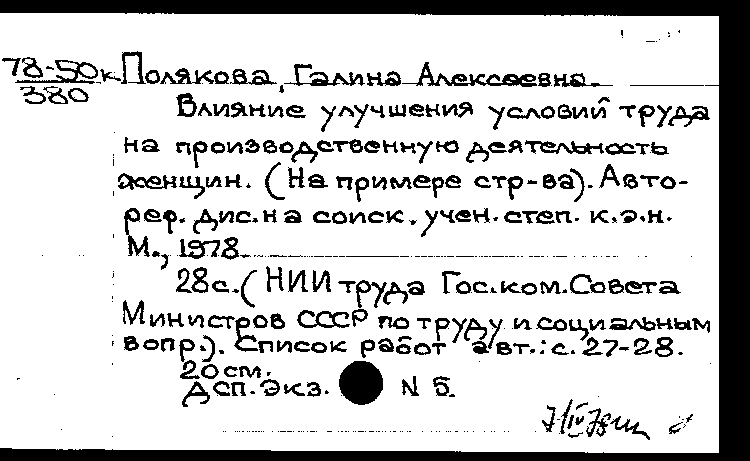 78-50к Полякова, Галина Алексеевна.
380
Влияние улучшения условий труда
на производственную деятельность
женщин. (На примере стр-ва). Авто-
реф. дис. на соиск. учен. степ. к.э.н.
М., 1978.
28с. (НИИ труда Гос. ком. Совета
Министров СССР по труду и социальным
вопр.). Список работ авт.: с. 27-28.
20см.
ДСП. Экз. N 5.